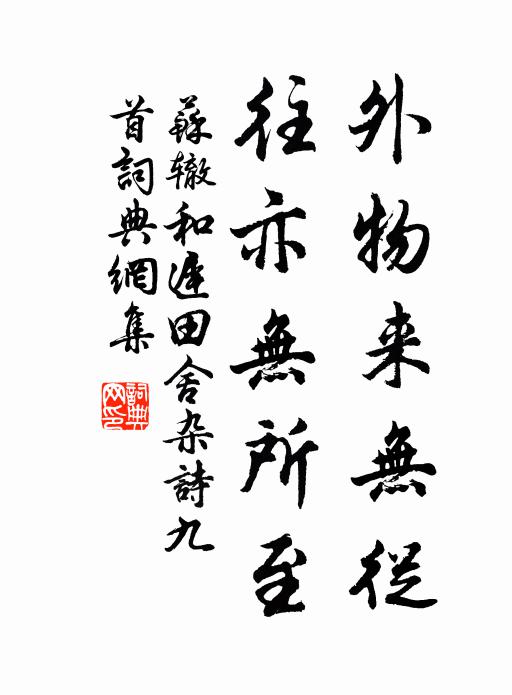 外物来無從
往亦無所至
蘇辙和遲田舍杂詩九
首詞典網集
詞典
网印